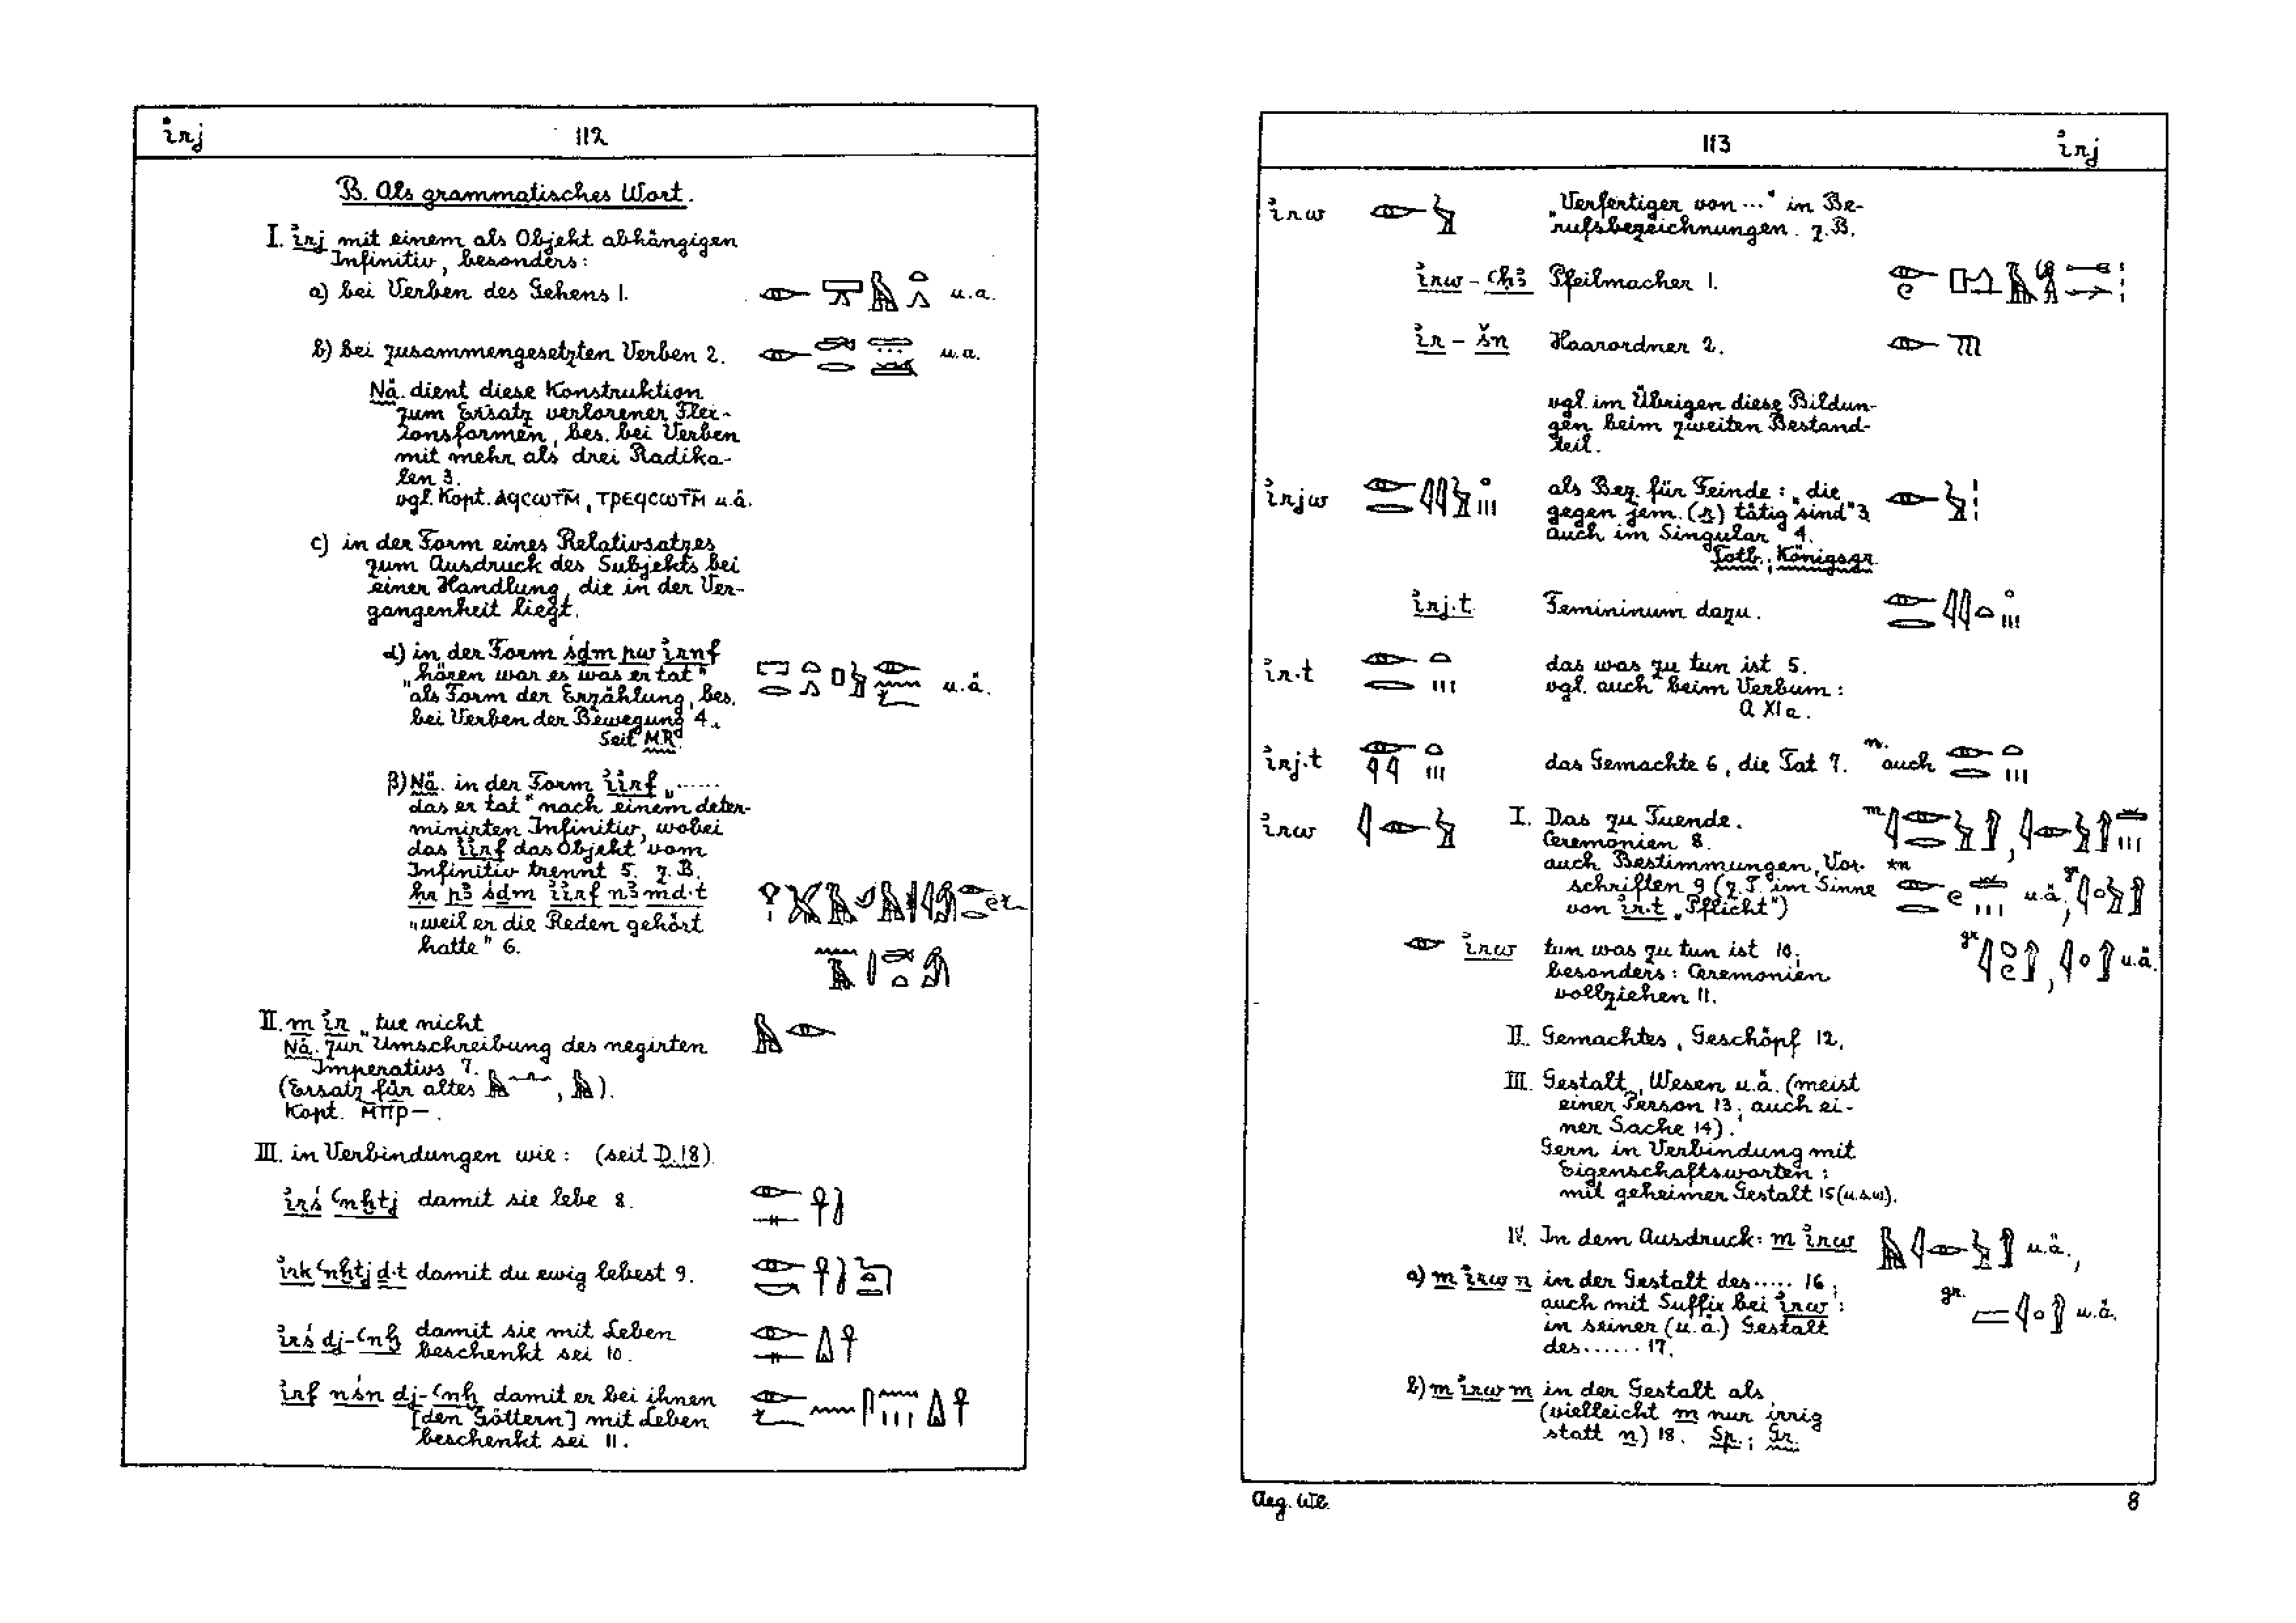 irj 112
B. Als grammatisches Wort.
I. irj mit einem als Objekt abhängigen
Infinitiv, besonders:
a) bei Verben des Gehens 1. u.a.
b) bei zusammengesetzten Verben 2. u.a.
Nä. dient diese Konstruktion
zum Ersatz verlorener Flex-
ionsformen, bes. bei Verben
mit mehr als drei Radika-
len 3.
vgl. Kopt. ⲁϥⲥⲱⲧⲙ̅, ⲧⲣⲉϥⲥⲱⲧⲙ̅ u.ä.
c) in der Form eines Relativsatzes
zum Ausdruck des Subjekts bei
einer Handlung, die in der Ver-
gangenheit liegt.
α) in der Form śdm pw irnf
"hören war es was er tat"
als Form der Erzählung, bes. u.ä.
bei Verben der Bewegung 4.
Seit M.R.
β) Nä. in der Form iirf "......
das er tat" nach einem deter-
minirten Infinitiv, wobei
das iirf das Objekt vom
Infinitiv trennt 5. z.B.
ḥr pꜣ śdm iirf nꜣ md.t
"weil er die Reden gehört
hatte" 6.
II. m ir "tue nicht
Nä. zur Umschreibung des negirten
Imperativs 7.
(Ersatz für altes , ).
Kopt. ⲙ̅ⲡ̅ⲣ–.
III. in Verbindungen wie: (seit D.18).
irś ꜥnḫtj damit sie lebe 8.
irk ꜥnḫtj d.t damit du ewig lebest 9.
irś dj-ꜥnḫ damit sie mit Leben
beschenkt sei 10.
irf nśn dj-ꜥnḫ damit er bei ihnen
[den Göttern] mit Leben
beschenkt sei 11.
113 irj
irw "Verfertiger von ..." in Be-
rufsbezeichnungen. z.B.
irw - ꜥḥꜣ Pfeilmacher 1.
ir - šn Haarordner 2.
vgl. im Übrigen diese Bildun-
gen beim zweiten Bestand-
teil.
irjw als Bez. für Feinde: "die
gegen jem. (r) tätig sind" 3
auch im Singular 4.
Totb.; Königsgr.
irj.t Femininum dazu.
ir.t das was zu tun ist 5.
vgl. auch beim Verbum:
A XI a.
irj.t das Gemachte 6, die Tat 7. n. auch
irw I. Das zu Tuende.
Ceremonien 8.
auch Bestimmungen, Vor-
schriften 9 (z.T. im Sinne
von ir.t "Pflicht") u.ä.; gr.
irw tun was zu tun ist 10;
besonders: Ceremonien
vollziehen 11. gr. u.ä.
II. Gemachtes, Geschöpf 12.
III. Gestalt, Wesen u.ä. (meist
einer Person 13; auch ei-
ner Sache 14).
Gern in Verbindung mit
Eigenschaftsworten:
mit geheimer Gestalt 15 (u.s.w).
IV. In dem Ausdruck: m irw u.ä.,
a) m irw n in der Gestalt des..... 16;
auch mit Suffix bei irw: gr. u.ä.
in seiner (u.ä.) Gestalt
des...... 17.
b) m irw m in der Gestalt als
(vielleicht m nur irrig
statt n) 18. Sp.; Gr.
Aeg. Wb. 8